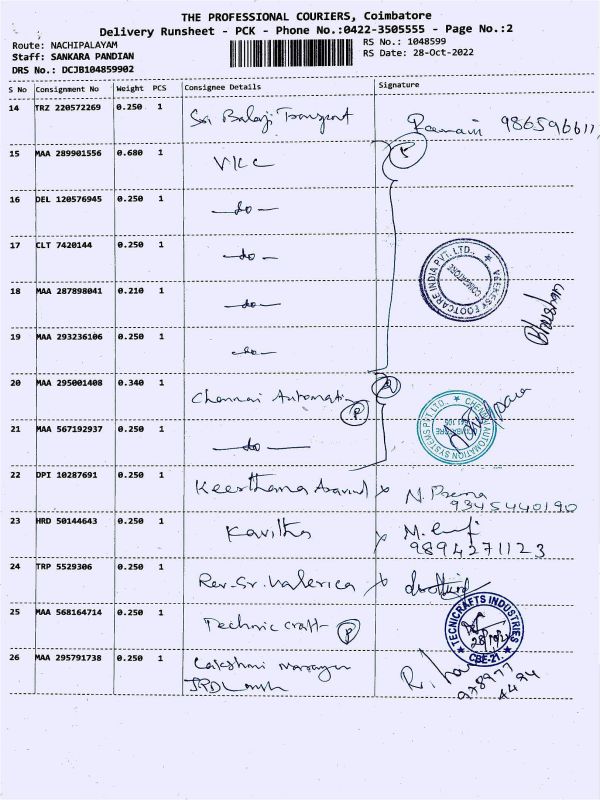 THE PROFESSIONAL COURIERS, Coimbatore
Delivery Runsheet - PCK - Phone No.:0422-3505555 - Page No.:2
Route: NACHIPALAYAM
RS No.: 1048599
Staff: SANKARA PANDIAN
RS Date: 28-Oct-2022
DRS No.: DCJB104859902
S No Consignment No Weight PCS Consignee Details Signature
14 TRZ 220572269 0.250 1 Sri Balaji Transport 986596611
15 MAA 289901556 0.680 1 VKC 5
16 DEL 120576945 0.250 1 -do-
17 CLT 7420144 0.250 1 -do-
VEEKESY FOOTCARE INDIA PVT. LTD., COIMBATORE
18 MAA 287898041 0.210 1 -do-
19 MAA 293236106 0.250 1 -do-
20 MAA 295001408 0.340 1 Chennai Automati P 2
21 MAA 567192937 0.250 1 -do-
CHENNAI AUTOMATION SYSTEMS PVT. LTD.
22 DPI 10287691 0.250 1 Keerthana Aravind x N. Prema
9345440190
23 HRD 50144643 0.250 1 Kavitha x M.
9894271123
24 TRP 5529306 0.250 1 Rev. Sr. Valerica x
25 MAA 568164714 0.250 1 Technic craft P
TECNICRAFTS INDUSTRIES CBE-21.
26 MAA 295791738 0.250 1 Lakshmi narayan